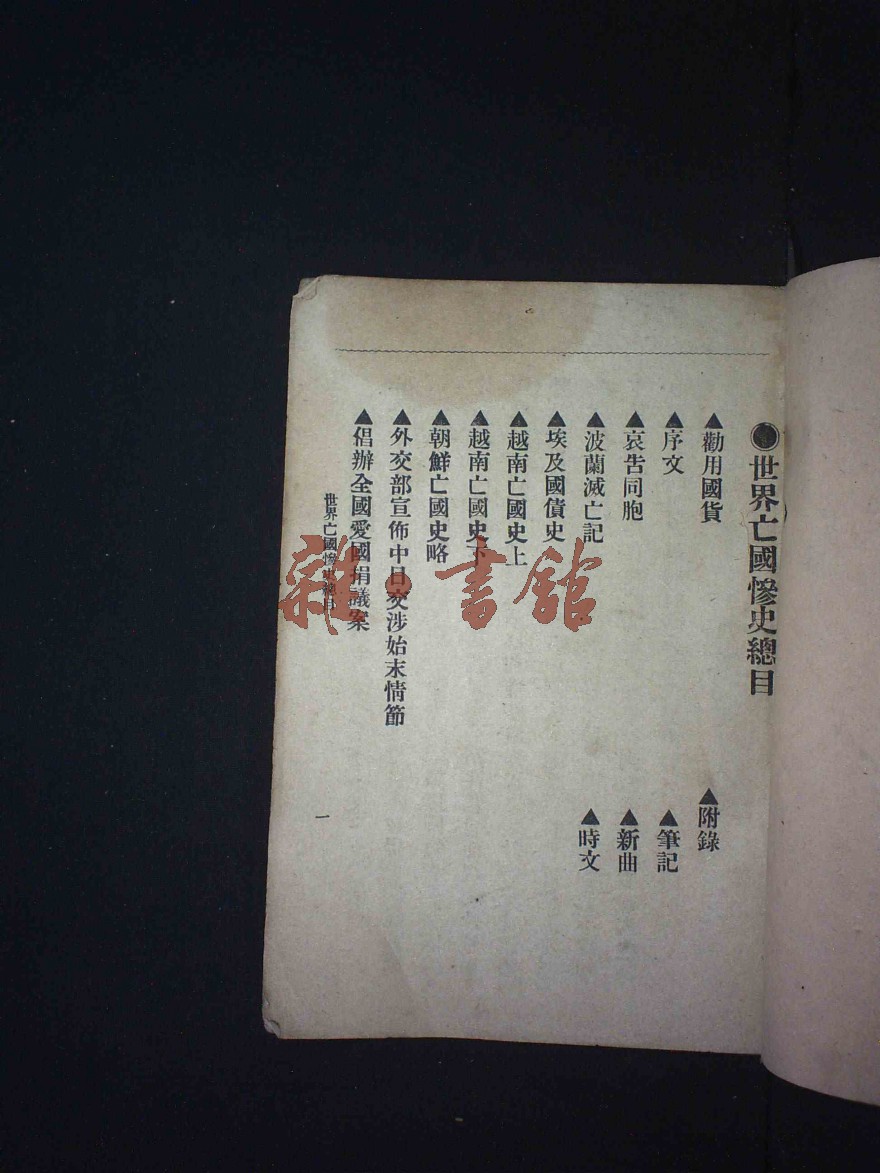 ●世界亡國慘史總目
▲勸用國貨
▲序文
▲哀告同胞
▲波蘭滅亡記
▲埃及國債史
▲越南亡國史上
▲越南亡國史下
▲朝鮮亡國史略
▲外交部宣佈中日交涉始末情節
▲倡辦全國愛國捐議案
▲附錄
▲筆記
▲新曲
▲時文
世界亡國慘史總目
一
雜·書館